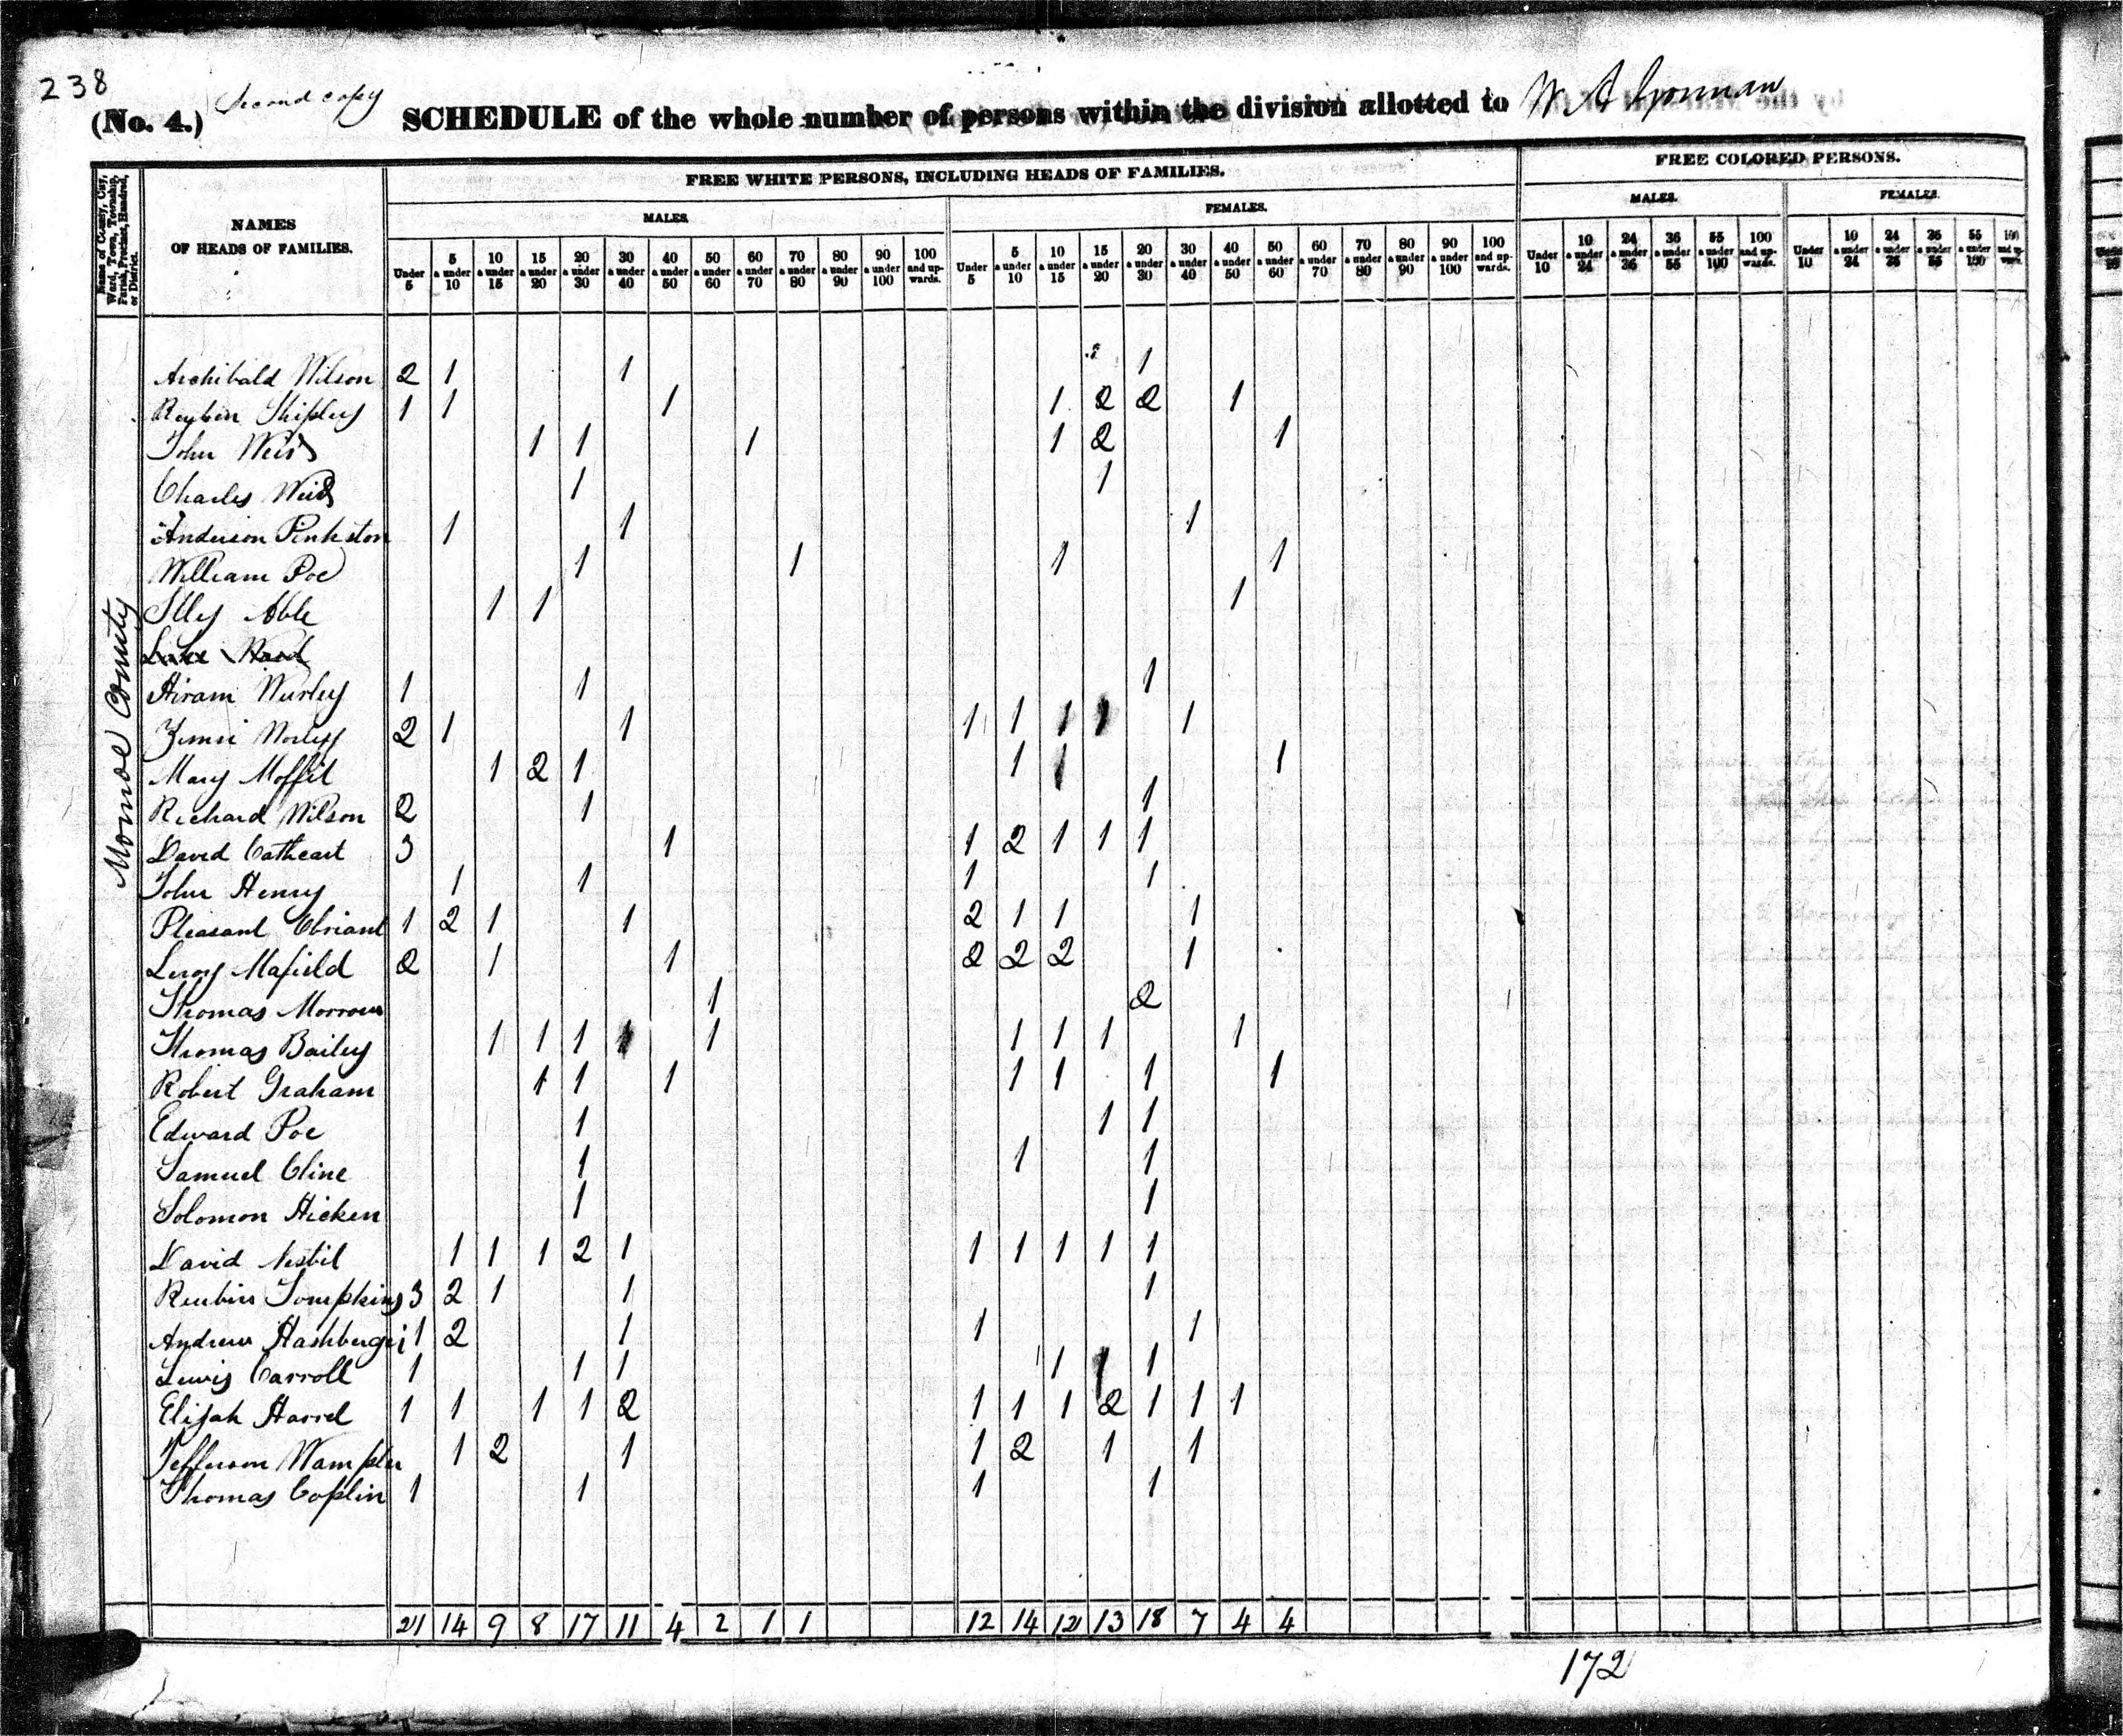 238
(No. 4.) Second copy SCHEDULE of the whole number of persons within the division allotted to W A Gorman
Name of County, City, Ward, Town, Township, Parish, Precinct, Hundred, or District.
NAMES
OF HEADS OF FAMILIES.
FREE WHITE PERSONS, INCLUDING HEADS OF FAMILIES.
FREE COLORED PERSONS.
MALES FEMALES. MALES. FEMALES.
Under 5 5 a under 10 10 a under 15 15 a under 20 20 a under 30 30 a under 40 40 a under 50 50 a under 60 60 a under 70 70 a under 80 80 a under 90 90 a under 100 100 and upwards. Under 5 5 a under 10 10 a under 15 15 a under 20 20 a under 30 30 a under 40 40 a under 50 50 a under 60 60 a under 70 70 a under 80 80 a under 90 90 a under 100 100 and upwards. Under 10 10 a under 24 24 a under 36 36 a under 55 55 a under 100 100 and upwards. Under 10 10 a under 24 24 a under 36 36 a under 55 55 a under 100 100 and upwards.
Monroe County
Archibald Wilson 2 1 1 1
Reuben Shipley 1 1 1 1 2 2 1
John Weir 1 1 1 1 2 1
Charles Weir 1 1
Anderson Pinkston 1 1 1
William Poe 1 1 1 1
Illey Able 1 1 1
Hiram Wurley 1 1 1
Zimri Worley 2 1 1 1 1 1 1 1
Mary Moffit 1 2 1 1 1 1
Richard Wilson 2 1 1
David Cathcart 3 1 1 2 1 1 1
John Henry 1 1 1 1
Pleasant Obriant 1 2 1 1 2 1 1 1
Leroy Mafield 2 1 1 2 2 2 1
Thomas Morrow 1 2
Thomas Bailey 1 1 1 1 1 1 1 1 1
Robert Graham 1 1 1 1 1 1 1
Edward Poe 1 1 1
Samuel Cline 1 1 1
Solomon Hicken 1 1
David Nesbit 1 1 1 2 1 1 1 1 1 1
Reubin Tompkins 3 2 1 1 1
Andrew Hashberger 1 2 1 1 1
Lewis Carroll 1 1 1 1 1 1
Elijah Harrel 1 1 1 1 2 1 1 1 2 1 1 1
Jefferson Wampler 1 2 1 1 2 1 1
Thomas Coplin 1 1 1 1
21 14 9 8 17 11 4 2 1 1 12 14 12 13 18 7 4 4
172